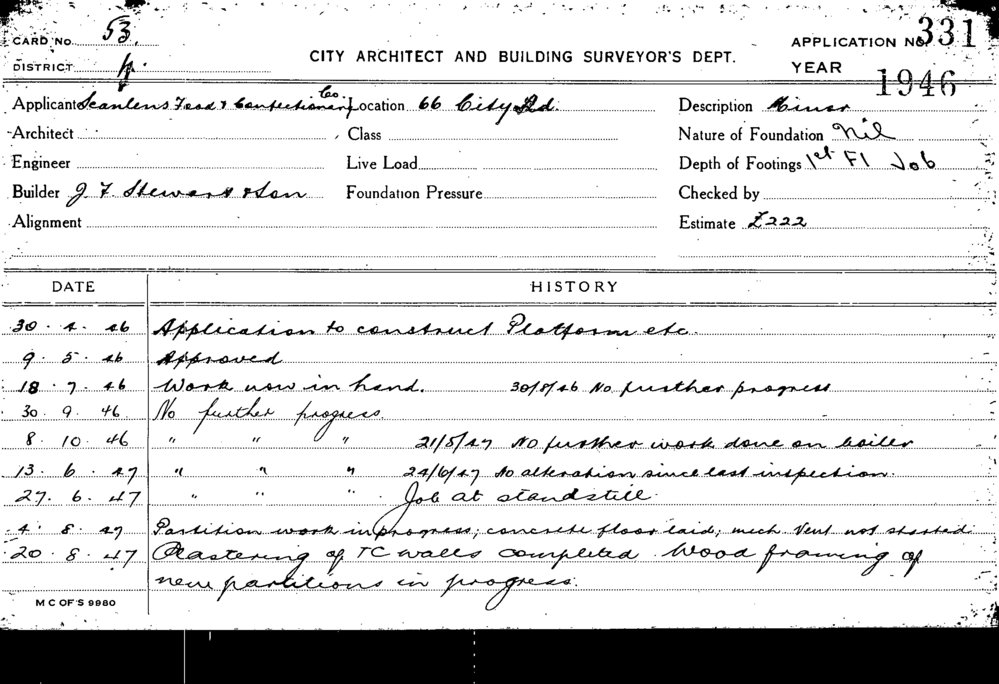 CARD No. 53.
APPLICATION No. 331
DISTRICT
CITY ARCHITECT AND BUILDING SURVEYOR'S DEPT.
YEAR 1946
Applicant Scanlens Food & Confectionary Co. Location 66 City Rd. Description Minor
Architect Class Nature of Foundation Nil
Engineer Live Load Depth of Footings 1st Fl Job
Builder J. F. Stewart & Son Foundation Pressure Checked by
Alignment Estimate £222
DATE HISTORY
30. 4. 46 Application to construct Platform etc
9. 5. 46 Approved
18. 7. 46 Work now in hand. 30/8/46 No further progress
30. 9. 46 No further progress.
8. 10. 46 " " " 21/5/47 No further work done on boiler
13. 6. 47 " " " 24/6/47 No alteration since last inspection.
27. 6. 47 " " " Job at standstill.
4. 8. 47 Partition work in progress; concrete floor laid; mech Vent not started
20. 8. 47 Plastering of TC walls completed. Wood framing of
new partitions in progress.
M C OF'S 9980